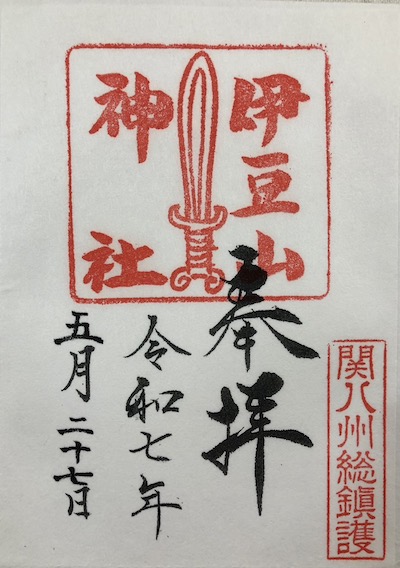 伊豆山
神社
奉拝
令和七年
五月二十七日
関八州総鎮護